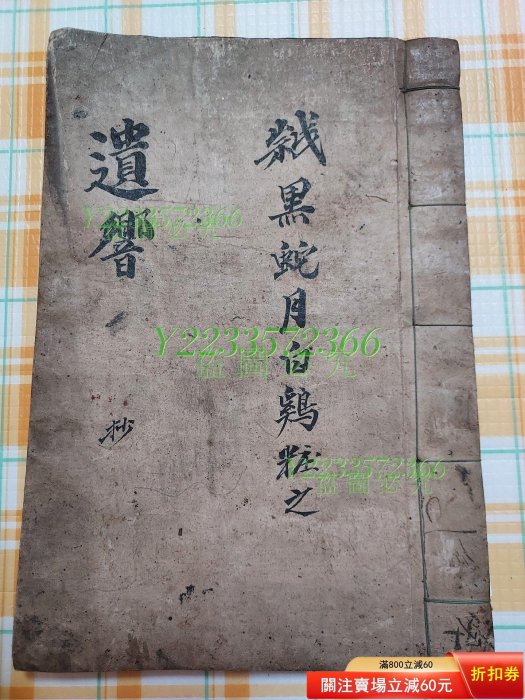 黑蛇月白鷄粧之
遺響
抄
Y2233572366
盜圖必究
Y2233572366
盜圖必究
Y2233572366
盜圖必究
滿800立減60
關注賣場立減60元
折扣券